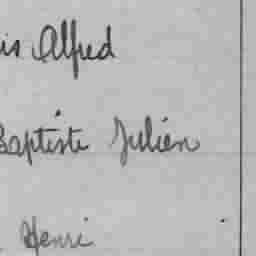 is Alfred
Baptiste Julien
Henri